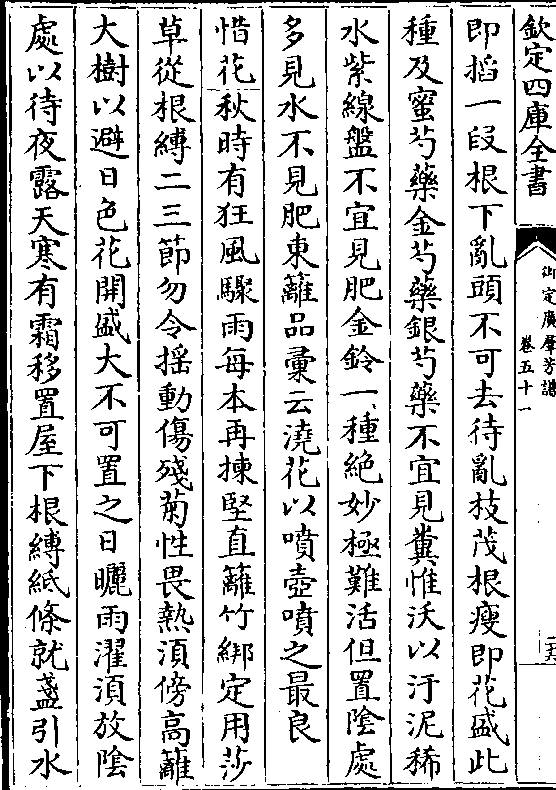 欽定四庫全書
御定廣羣芳譜
卷五十一
即搯一段根下亂頭不可去待亂枝茂根瘦即花盛此
種及蜜芍藥金芍藥銀芍藥不宜見糞惟沃以汙泥稀
水紫線盤不宜見肥金鈴一種絶妙極難活但置陰處
多見水不見肥東籬品彚云澆花以噴壺噴之最良
惜花秋時有狂風驟雨每本再揀堅直籬竹綁定用莎
草從根縛二三節勿令揺動傷殘菊性畏熱湏傍高籬
大樹以避日色花開盛大不可置之日曬雨濯湏放陰
處以待夜露天寒有霜移置屋下根縛紙條就盞引水